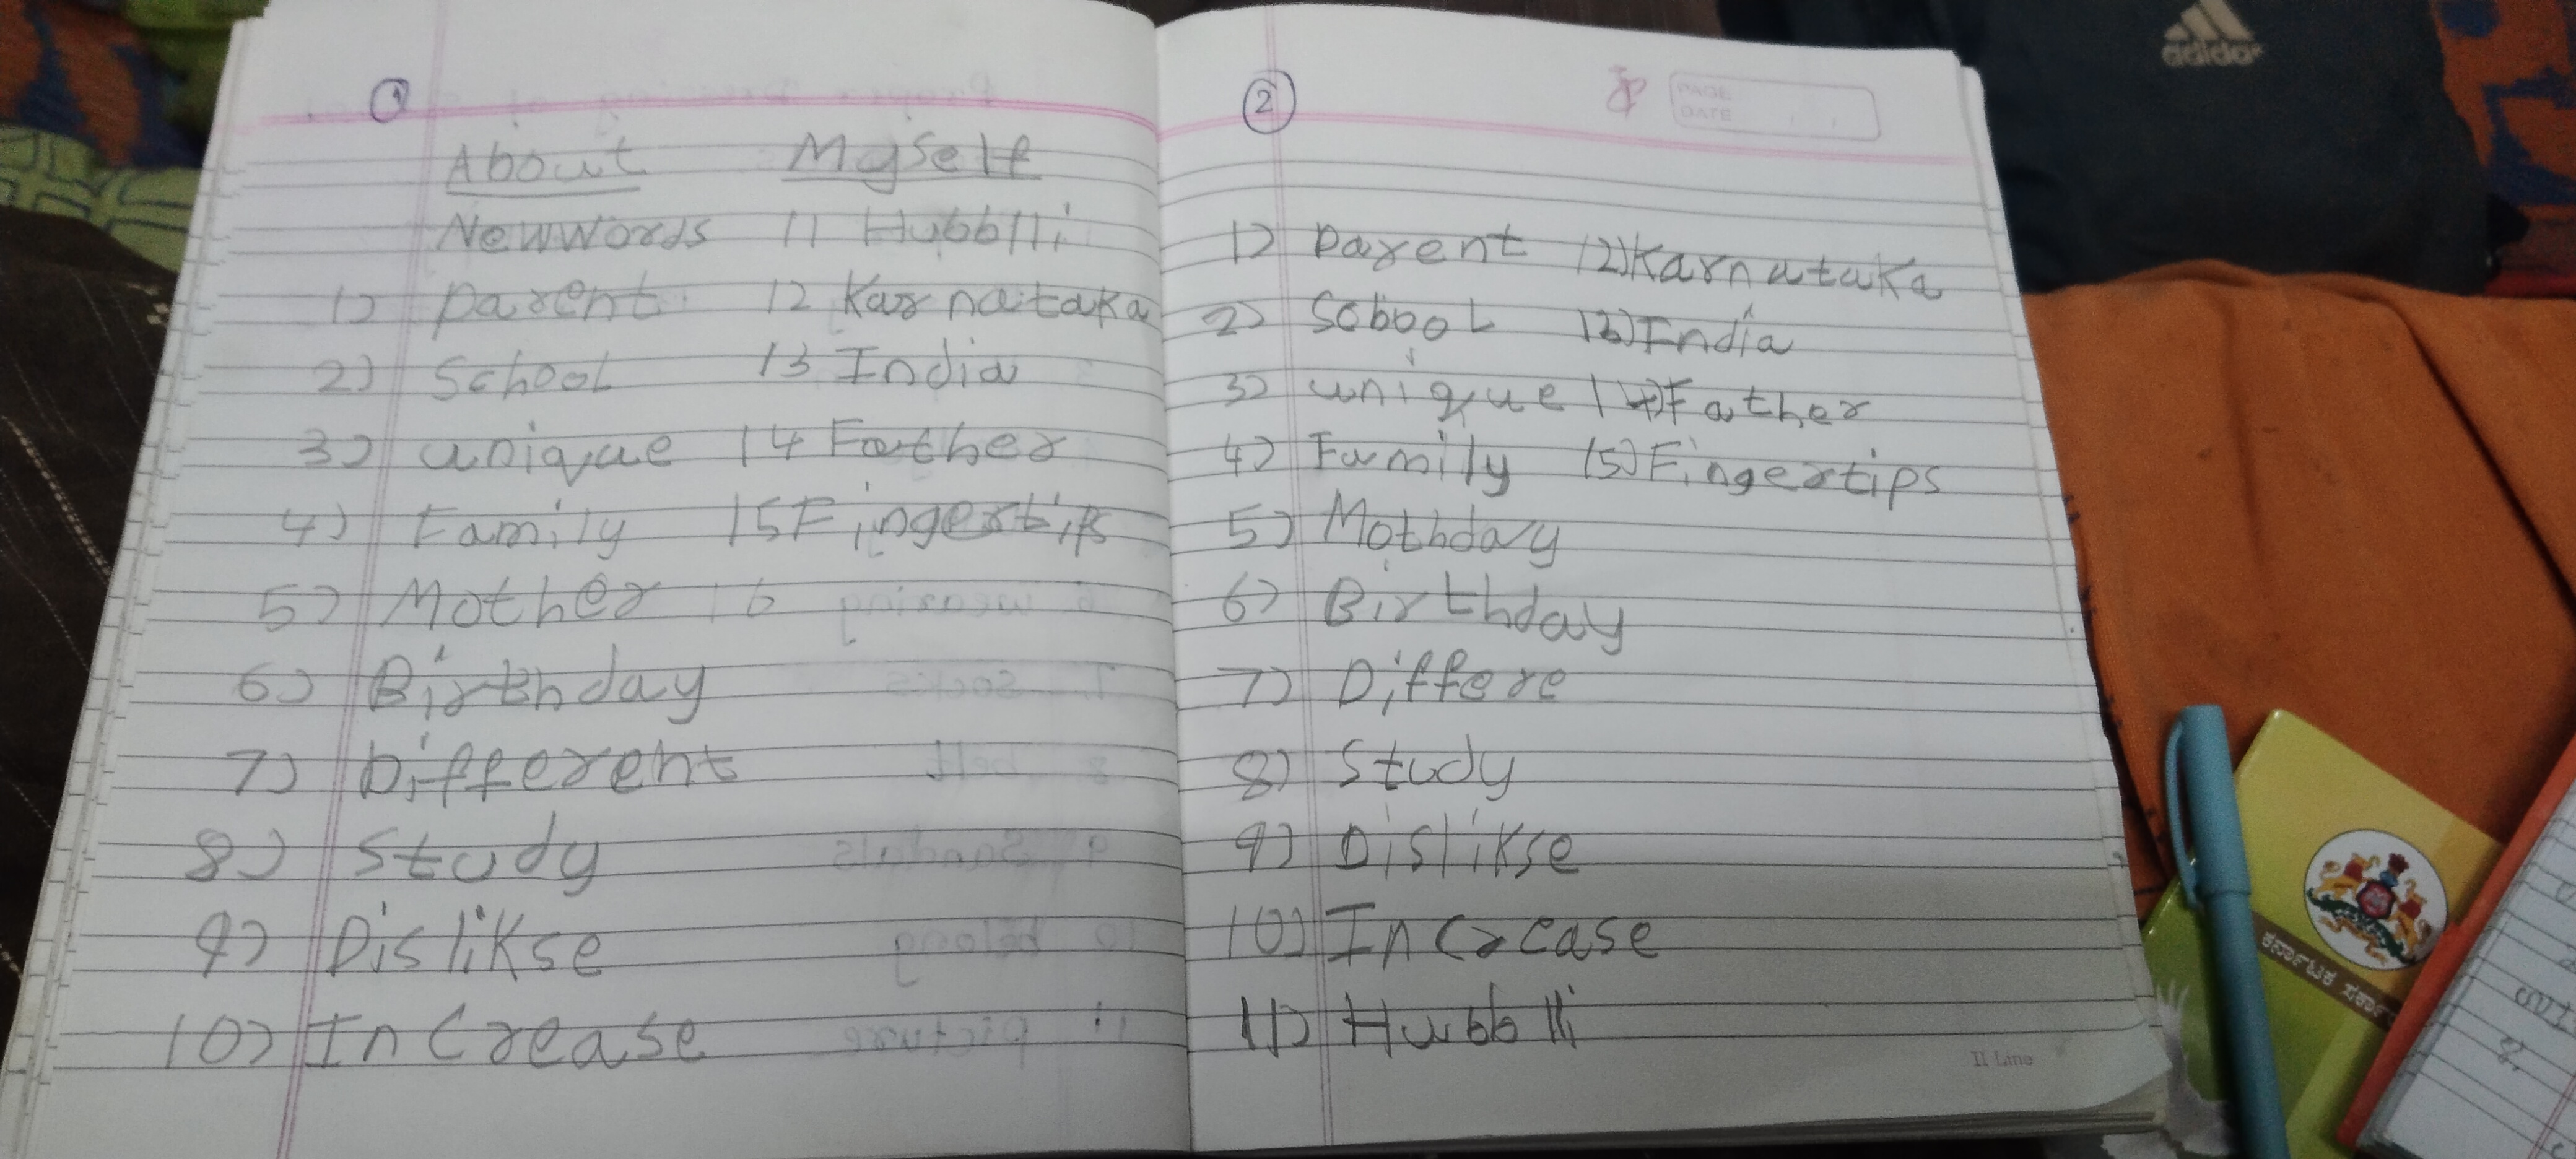 1
About Myself
Newwords 11 Hubblli
1) parent 12 Karnataka
2) School 13 India
3) unique 14 Father
4) Family 15 Fingertips
5) Mother 16
6) Birthday
7) Different
8) Study
9) Dislikse
10) Increase
2
PAGE
DATE
1) parent 12) Karnataka
2) School 13) India
3) unique 14) Father
4) Family 15) Fingertips
5) Mothday
6) Birthday
7) Differe
8) Study
9) Dislikse
10) Increase
11) Hubblli
II Line
adidas
ಕರ್ನಾಟಕ ಸರ್ಕಾರ